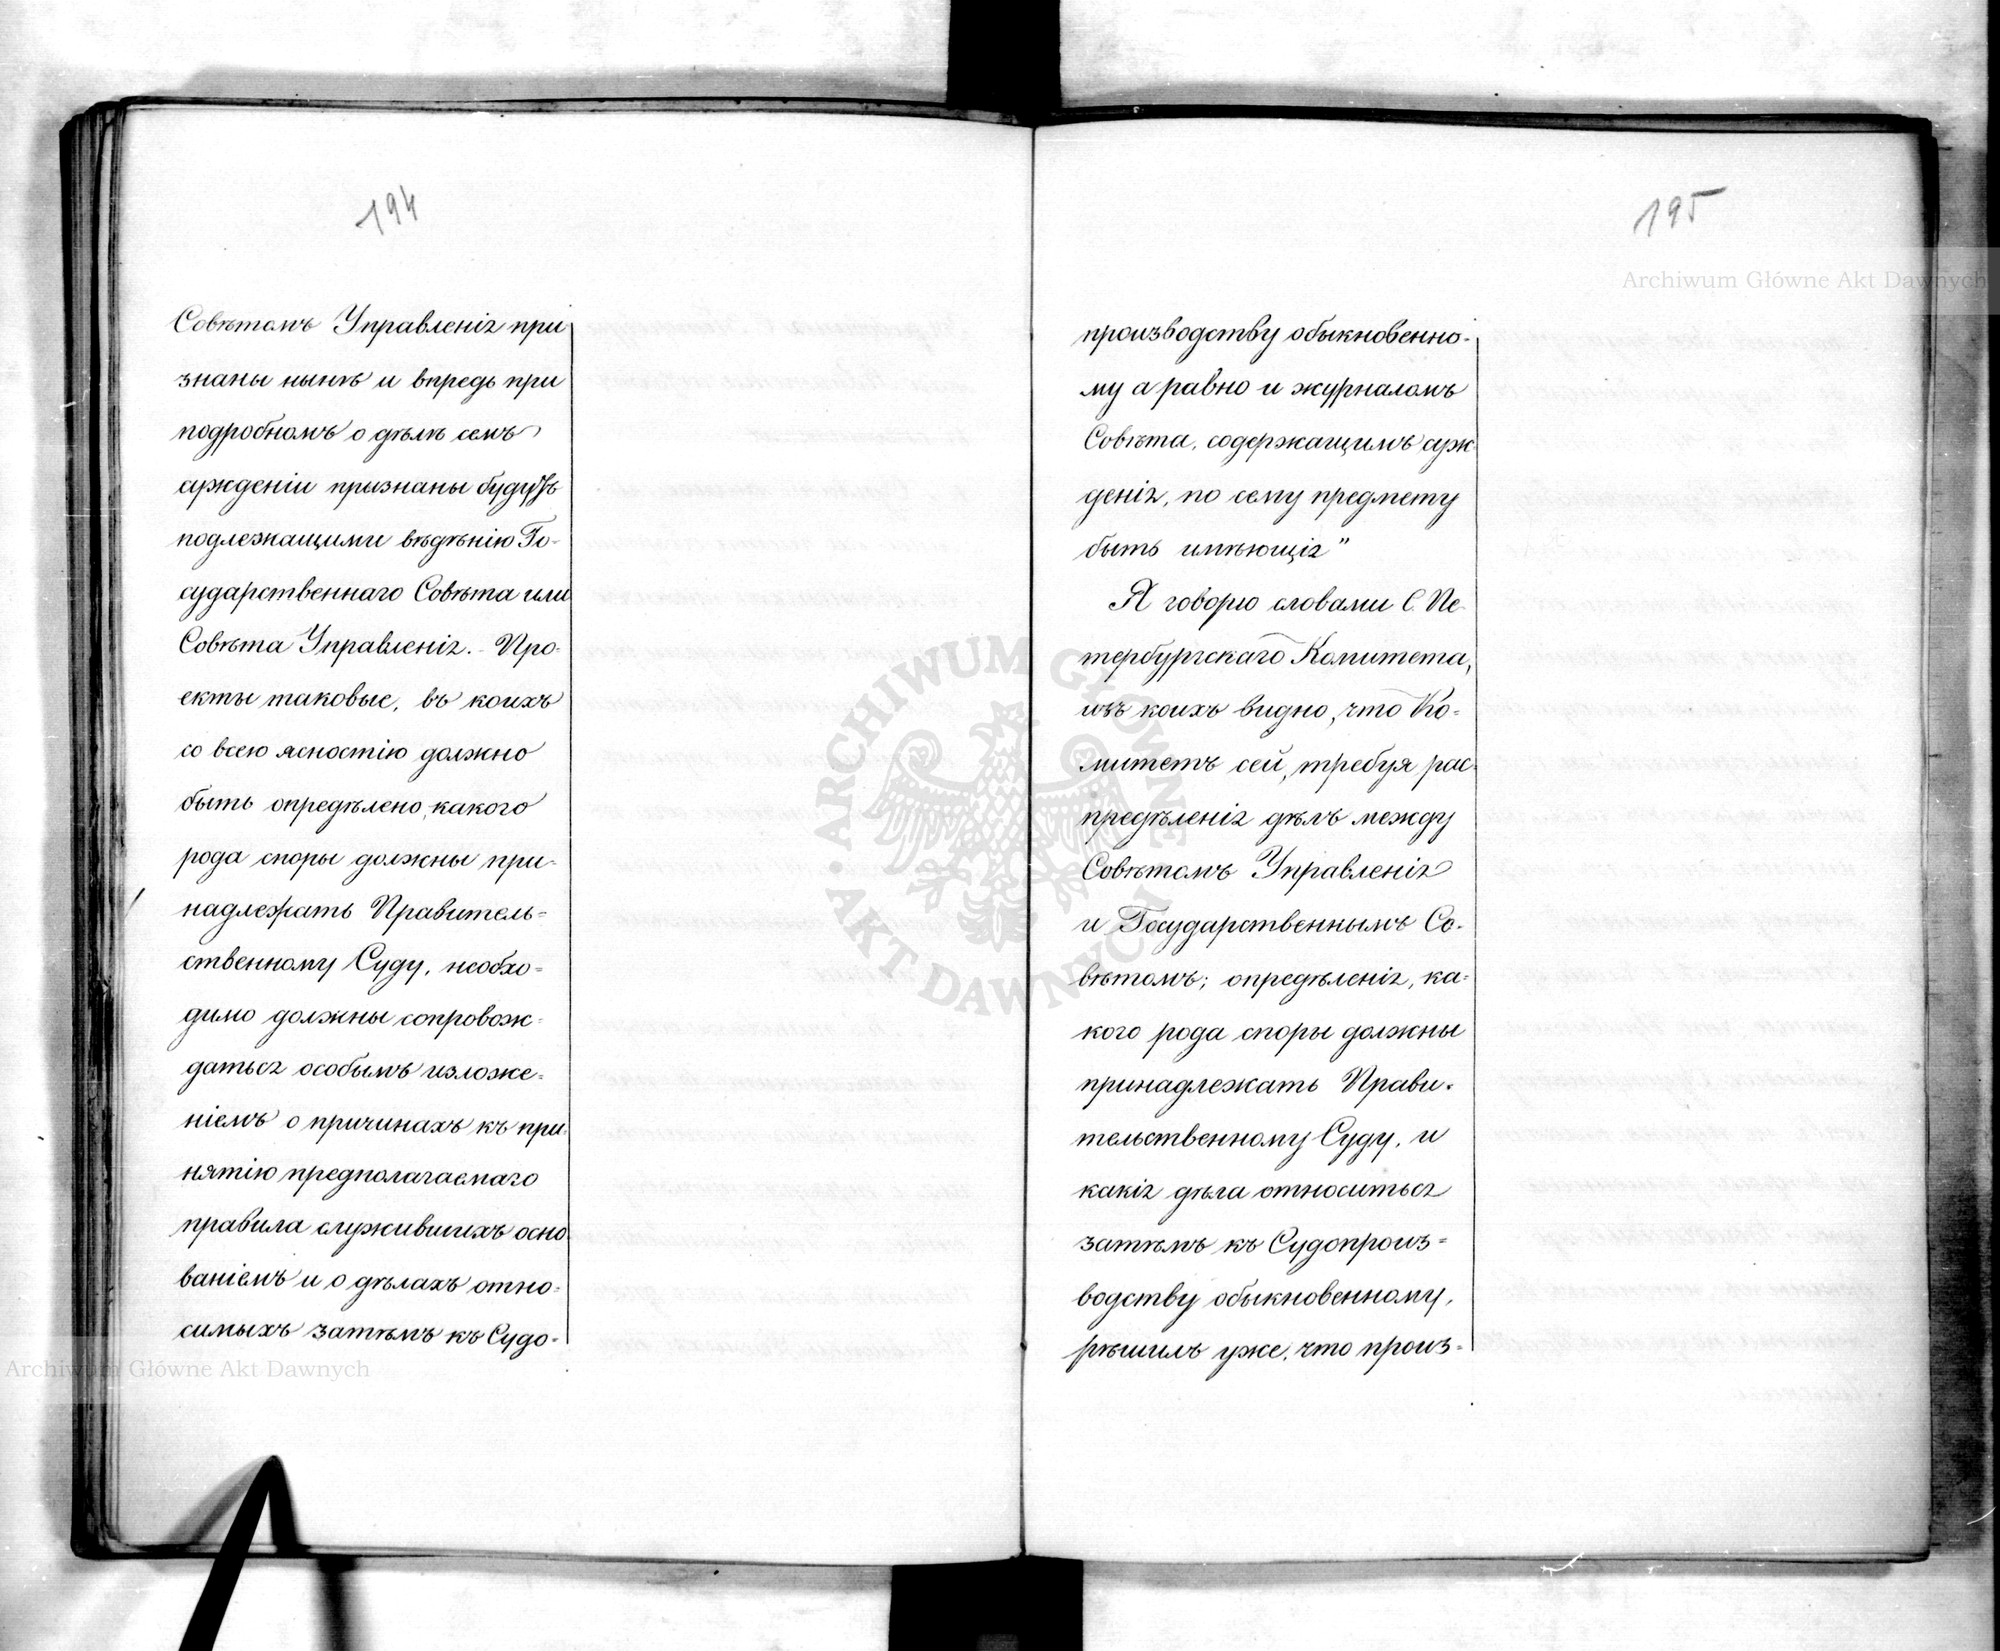 194
Совѣтомъ Управленія при
знаны нынѣ и впредь при
подробномъ о дѣлѣ семъ
сужденіи признаны будутъ
подлежащими вѣдѣнію Го-
сударственнаго Совѣта или
Совѣта Управленія. - Про-
екты таковые, въ коихъ
со всею ясностію должно
быть опредѣлено, какого
рода споры должны при-
надлежать Правитель=
ственному Суду, необхо=
димо должны сопровож-
даться особымъ изложе-
ніемъ о причинахъ къ при-
нятію предполагаемаго
правила служившихъ осно
ваніемъ и о дѣлахъ отно-
симыхъ затѣмъ къ Судо-
195
производству обыкновенно-
му а равно и журналомъ
Совѣта, содержащимъ суж
денія, по сему предмету
быть имѣющія"
Я говорю словами С. Пе-
тербургскаго Комитета,
изъ коихъ видно, что Ко=
митетъ сей, требуя рас-
предѣленія дѣлъ между
Совѣтомъ Управленія
и Государственнымъ Со-
вѣтомъ; опредѣленія, ка-
кого рода споры должны
принадлежать Прави-
тельственному Суду, и
какія дѣла относиться
затѣмъ къ Судопроиз=
водству обыкновенному,
рѣшилъ уже, что произ-
Archiwum Główne Akt Dawnych
Archiwum Główne Akt Dawnych
ARCHIWUM GŁÓWNE · AKT DAWNYCH ·